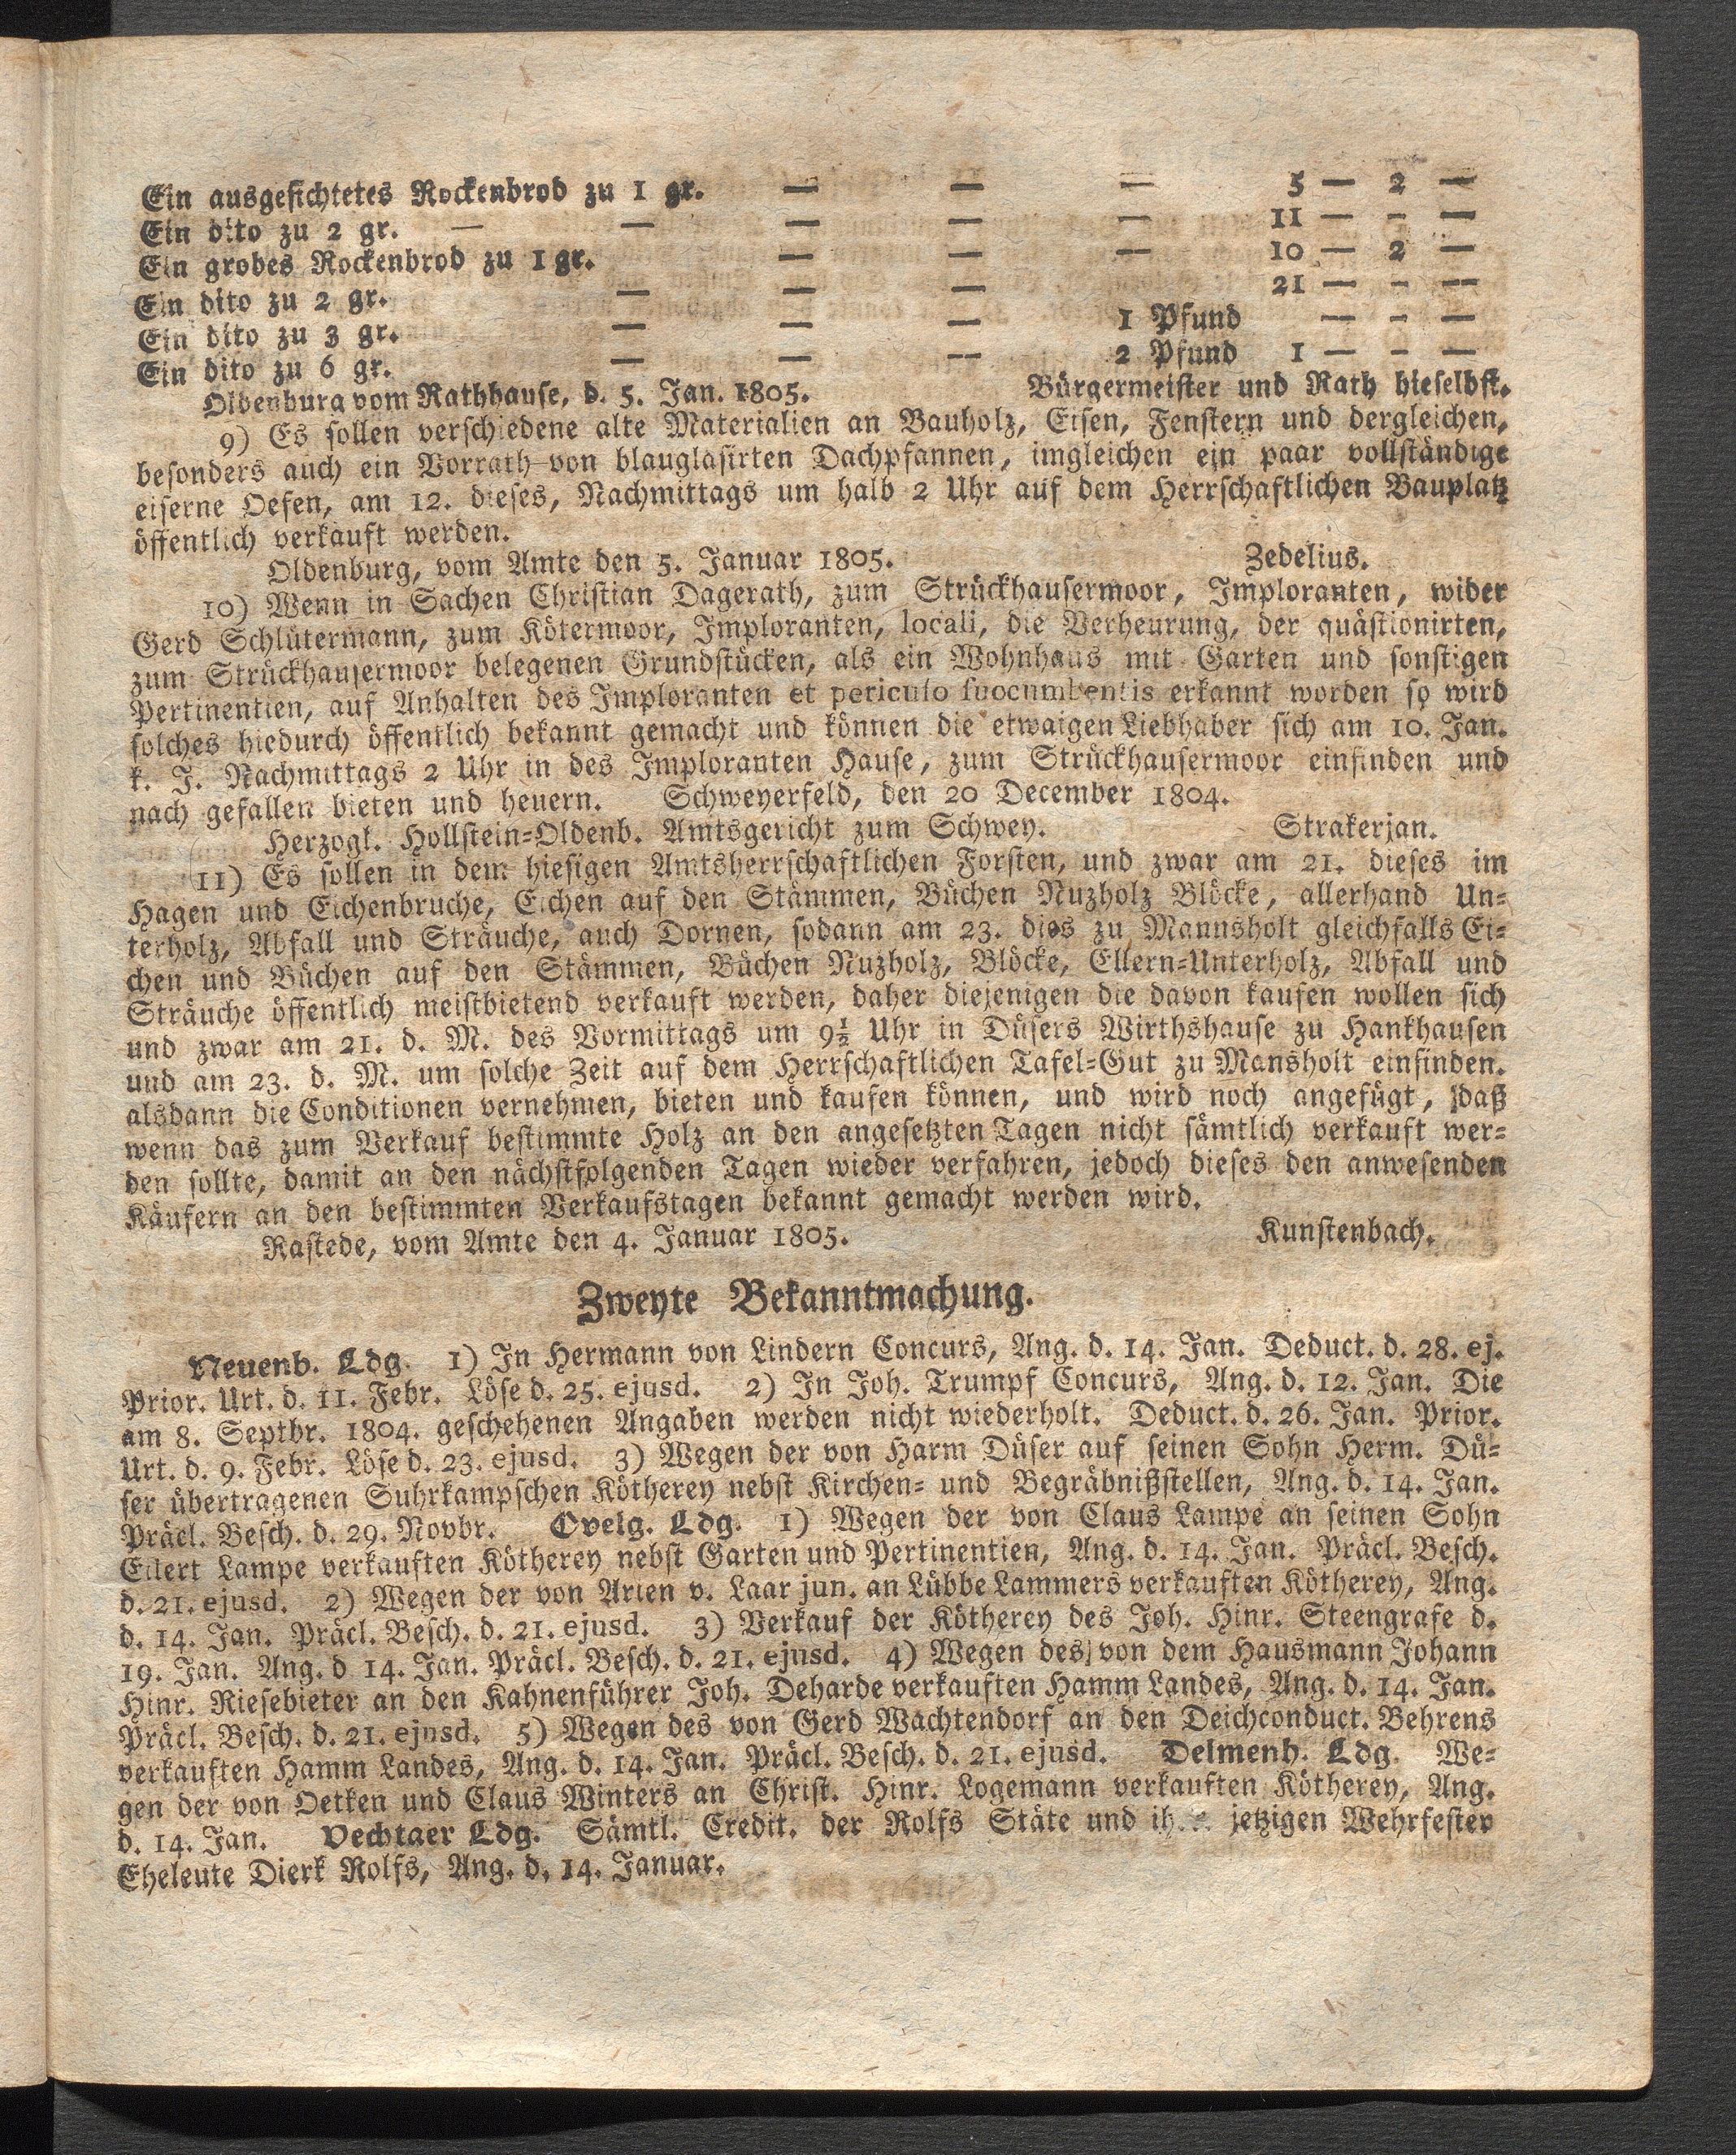 Ein ausgesichtetes Rockenbrod zu 1 gr. — — — 5 — 2 —
Ein dito zu 2 gr. — — — — — 11 — - —
Ein grobes Rockenbrod zu 1 gr. — — — 10 — 2 —
Ein dito zu 2 gr. — — — 21 — - —
Ein dito zu 3 gr. — — — 1 Pfund — - —
Ein dito zu 6 gr. — — — 2 Pfund 1 — - —
Oldenburg vom Rathhause, d. 5. Jan. 1805. Bürgermeister und Rath hieselbst.
9) Es sollen verschiedene alte Materialien an Bauholz, Eisen, Fenstern und dergleichen,
besonders auch ein Vorrath von blauglasirten Dachpfannen, imgleichen ein paar vollständige
eiserne Oefen, am 12. dieses, Nachmittags um halb 2 Uhr auf dem Herrschaftlichen Bauplatz
öffentlich verkauft werden.
Oldenburg, vom Amte den 5. Januar 1805. Zedelius.
10) Wenn in Sachen Christian Dagerath, zum Strückhausermoor, Imploranten, wider
Gerd Schlütermann, zum Kötermoor, Imploranten, locali, die Verheurung, der quästionirten,
zum Strückhausermoor belegenen Grundstücken, als ein Wohnhaus mit Garten und sonstigen
Pertinentien, auf Anhalten des Imploranten et periculo suocumbentis erkannt worden so wird
solches hiedurch öffentlich bekannt gemacht und können die etwaigen Liebhaber sich am 10. Jan.
k. J. Nachmittags 2 Uhr in des Imploranten Hause, zum Strückhausermoor einfinden und
nach gefallen bieten und heuern. Schweyerfeld, den 20 December 1804.
Herzogl. Hollstein-Oldenb. Amtsgericht zum Schwey. Strakerjan.
11) Es sollen in dem hiesigen Amtsherrschaftlichen Forsten, und zwar am 21. dieses im
Hagen und Eichenbruche, Eichen auf den Stämmen, Büchen Nuzholz Blöcke, allerhand Un-
terholz, Abfall und Sträuche, auch Dornen, sodann am 23. dies zu Mannsholt gleichfalls Ei-
chen und Büchen auf den Stämmen, Büchen Nuzholz, Blöcke, Ellern-Unterholz, Abfall und
Sträuche öffentlich meistbietend verkauft werden, daher diejenigen die davon kaufen wollen sich
und zwar am 21. d. M. des Vormittags um 9½ Uhr in Düsers Wirthshause zu Hankhausen
und am 23. d. M. um solche Zeit auf dem Herrschaftlichen Tafel-Gut zu Mansholt einfinden.
alsdann die Conditionen vernehmen, bieten und kaufen können, und wird noch angefügt, daß
wenn das zum Verkauf bestimmte Holz an den angesetzten Tagen nicht sämtlich verkauft wer-
den sollte, damit an den nächstfolgenden Tagen wieder verfahren, jedoch dieses den anwesenden
Käufern an den bestimmten Verkaufstagen bekannt gemacht werden wird.
Rastede, vom Amte den 4. Januar 1805. Kunstenbach.
Zweyte Bekanntmachung.
Neuenb. Ldg. 1) In Hermann von Lindern Concurs, Ang. d. 14. Jan. Deduct. d. 28. ej.
Prior. Urt. d. 11. Febr. Löse d. 25. ejusd. 2) In Joh. Trumpf Concurs, Ang. d. 12. Jan. Die
am 8. Septbr. 1804. geschehenen Angaben werden nicht wiederholt. Deduct. d. 26. Jan. Prior.
Urt. d. 9. Febr. Löse d. 23. ejusd. 3) Wegen der von Harm Düser auf seinen Sohn Herm. Dü-
ser übertragenen Suhrkampschen Kötherey nebst Kirchen- und Begräbnißstellen, Ang. d. 14. Jan.
Präcl. Besch. d. 29. Novbr. Ovelg. Ldg. 1) Wegen der von Claus Lampe an seinen Sohn
Eilert Lampe verkauften Kötherey nebst Garten und Pertinentien, Ang. d. 14. Jan. Präcl. Besch.
d. 21. ejusd. 2) Wegen der von Arien v. Laar jun. an Lübbe Lammers verkauften Kötherey, Ang.
d. 14. Jan. Präcl. Besch. d. 21. ejusd. 3) Verkauf der Kötherey des Joh. Hinr. Steengrafe d.
19. Jan. Ang. d 14. Jan. Präcl. Besch. d. 21. ejusd. 4) Wegen des von dem Hausmann Johann
Hinr. Riesebieter an den Kahnenführer Joh. Deharde verkauften Hamm Landes, Ang. d. 14. Jan.
Präcl. Besch. d. 21. ejusd. 5) Wegen des von Gerd Wachtendorf an den Deichconduct. Behrens
verkauften Hamm Landes, Ang. d. 14. Jan. Präcl. Besch. d. 21. ejusd. Delmenh. Ldg. We-
gen der von Oetken und Claus Winters an Christ. Hinr. Logemann verkauften Kötherey, Ang.
d. 14. Jan. Vechtaer Ldg. Sämtl. Credit. der Rolfs Stäte und jetzigen Wehrfester
Eheleute Dierk Rolfs, Ang. d. 14. Januar.